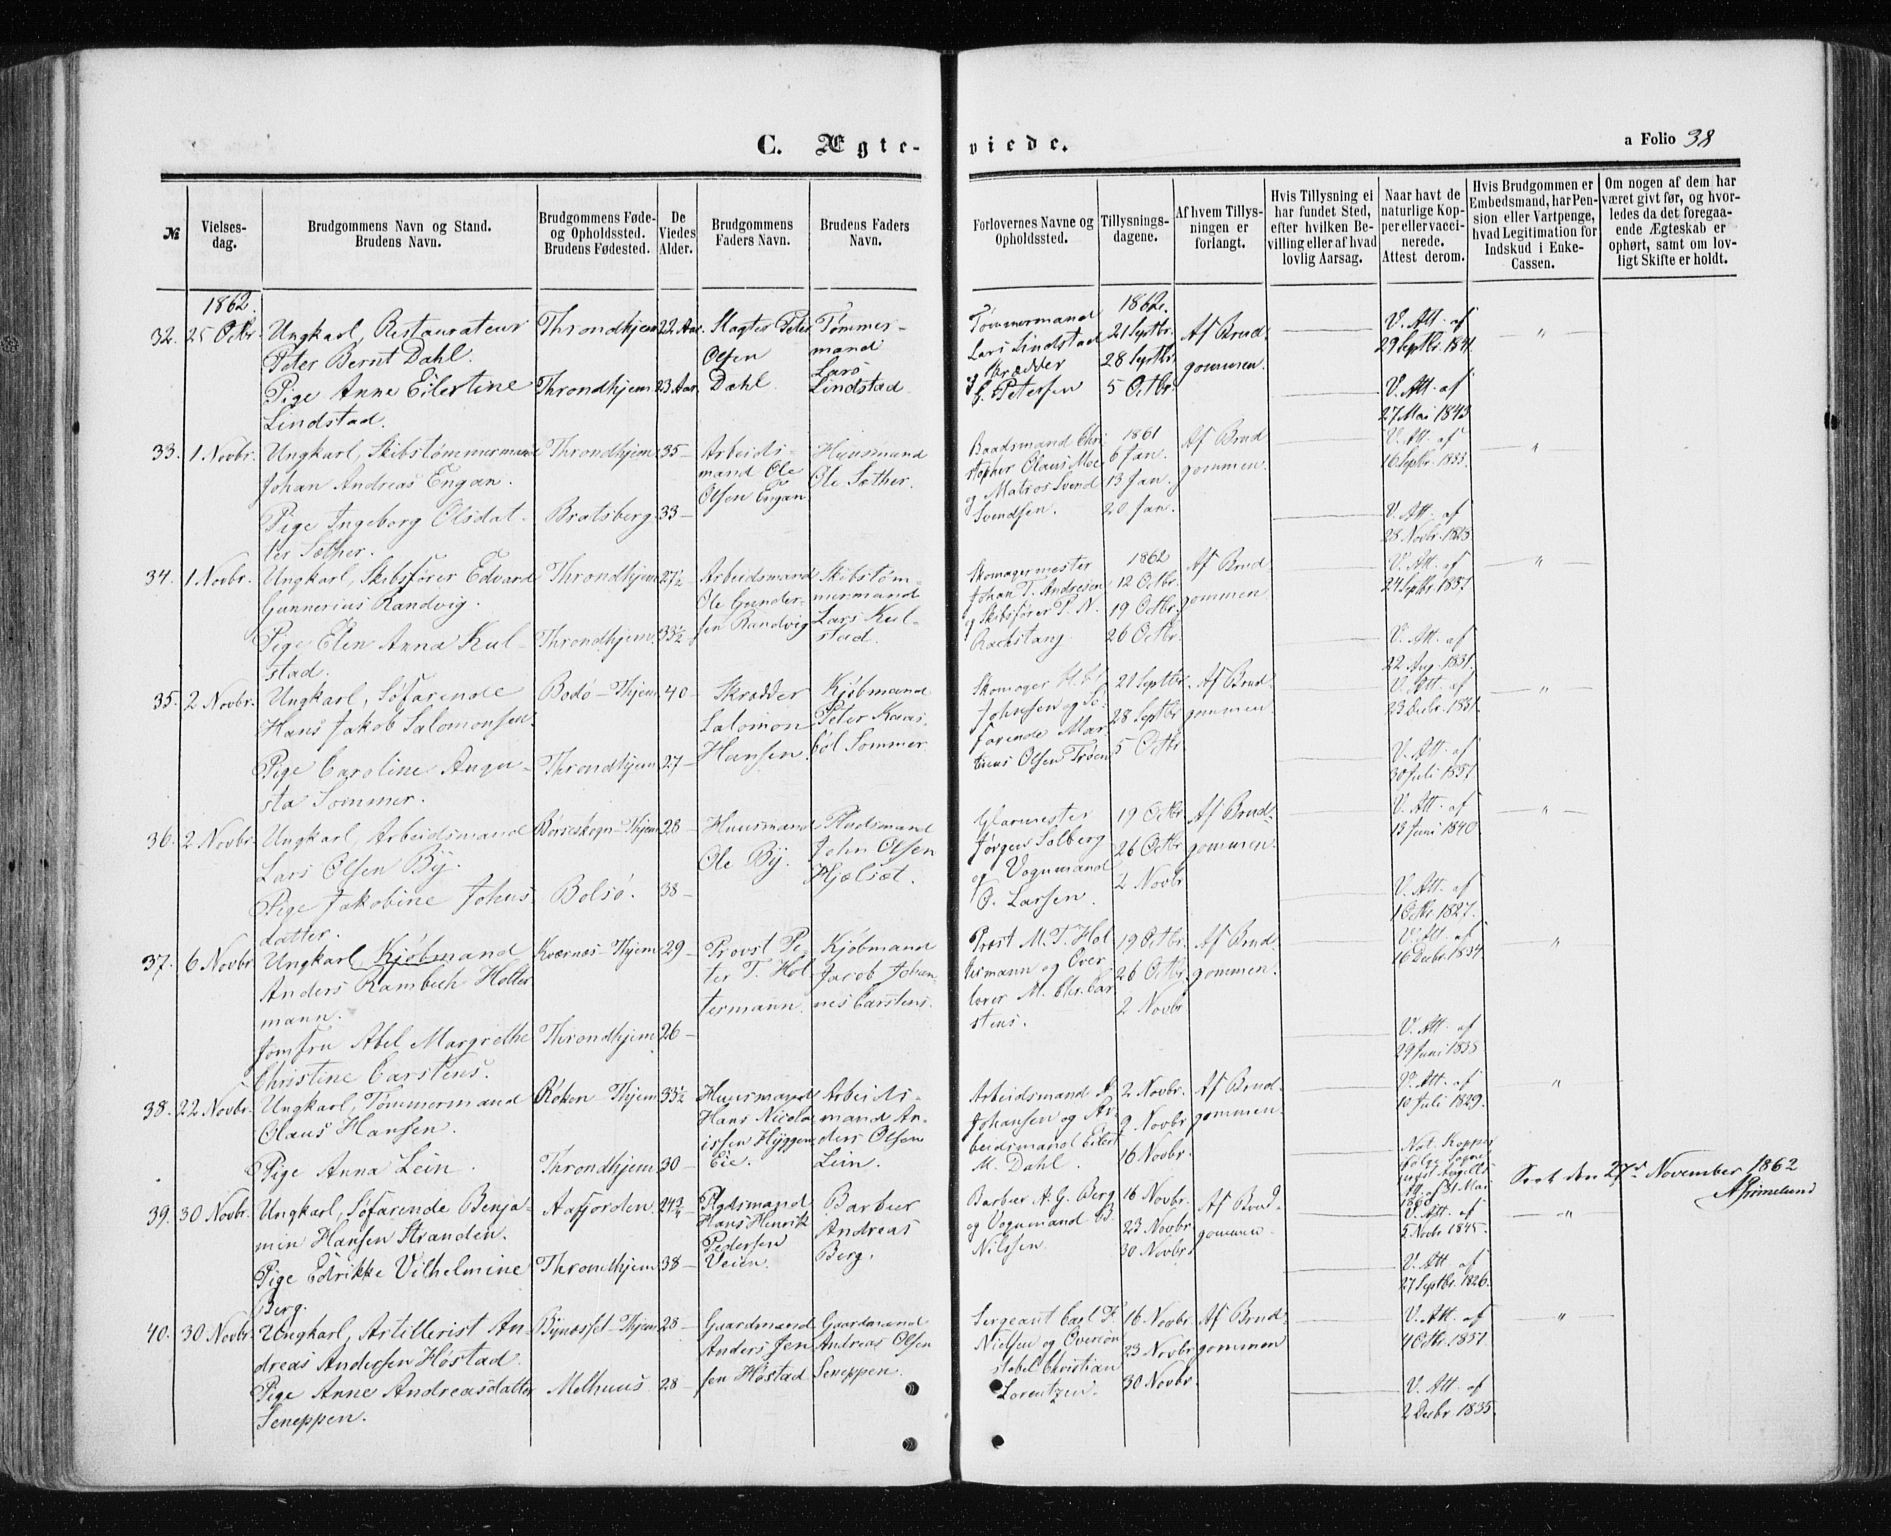 C. Ægte-
viede.
a Folio 38
№
Vielses-
dag.
Brudgommens Navn og Stand.
Brudens Navn.
Brudgommens Føde-
og Opholdssted.
Brudens Fødested.
De
Viedes
Alder.
Brudgommens
Faders Navn.
Brudens Faders
Navn.
Forlovernes Navne og
Opholdssted.
Tillysnings-
dagene.
Af hvem Tillys-
ningen er
forlangt.
Hvis Tillysning ei
har fundet Sted,
efter hvilken Be-
villing eller af hvad
lovlig Aarsag.
Naar havt de
naturlige Kop-
per eller vacci-
nerede.
Attest derom.
Hvis Brudgommen er
Embedsmand, har Pen-
sion eller Vartpenge,
hvad Legitimation for
Indskud i Enke-
Cassen.
Om nogen af dem har
været givt før, og hvor-
ledes da det foregaa-
ende Ægteskab er
ophørt, samt om lov-
ligt Skifte er holdt.
1862.
32.
25 Octbr.
Ungkarl, Restaurateur
Peter Bernt Dahl.
Pige Anne Eilertine
Lindstad.
Throndhjem
Throndhjem
22 Aar.
23 Aar.
Slagter Peter
Olsen
Dahl.
Tømmer-
mand
Lars
Lindstad
Tømmermand
Lars Lindstad
Skrædder
Petersen
1862.
21 Septbr.
28 Septbr.
5 Octbr.
Af Brud-
gommen.
V. Att. af
29 Septbr. 1841.
V. Att. af
27 Mai 1843
"
33.
1 Novbr.
Ungkarl, Skibstømmermand
Johan Andreas Engan.
Pige Ingeborg Olsdat-
ter Sæther.
Throndhjem
Bratsberg
35
33
Arbeids-
mand Ole
Olsen Engan
Huusmand
Ole Sæther.
Baadsmand Chri-
stopher Olaus Moe
og Matros Svend
Svendsen.
1861
6 Jan.
13 Jan.
20 Jan.
Af Brud
gommen.
V. Att. af
16 Septbr. 1833.
V. Att. af
28 Novbr.
"
34.
1 Novbr.
Ungkarl, Skibsfører Edvard
Gunnerius Randvig.
Pige Elen Anna Kul-
stad.
Throndhjem
Throndhjem
27½
33½
Arbeidsmand
Ole Gunder-
sen Randvig
Skibstøm-
mermand
Lars Kul-
stad.
Skomagermester
Johan T. Andresen
og Skibsfører P. N.
1862
12 Octbr.
19 Octbr.
26 Octbr.
Af Brud
gommen
V. Att. af
24 Septbr. 1837
V. Att. af
22 Aug. 1831.
"
35.
2 Novbr.
Ungkarl, Søfarende
Hans Jakob Salomonsen.
Pige Caroline Augu-
sta Sommer.
Bodø - Thjem
Throndhjem
40
27
Skrædder
Salomon
Hansen
Kjøbmand
Peter Kaas-
bøl Sommer
Skomager
Johnsen og Sø-
farende Mar-
Olsen Trøen
21 Septbr.
28 Septbr
5 Octbr
Af Brud-
gommen.
V. Att. af
23 Decbr. 1831.
V. Att. af
30 Juli 1837
"
36.
2 Novbr.
Ungkarl, Arbeidsmand
Lars Olsen By.
Pige Jakobine Johns-
datter.
Børseskogn - Thjem
Bolsø.
28
38
Huusmand
Ole By.
Pladsmand
John Olsen
Hjelset.
Glarmester
Jørgen Solberg
og Vognmand
O. Larsen.
19 Octbr
26 Octbr
2 Novbr
Af Brud-
gommen.
V. Att. af
15 Juni 1840
V. Att. af
1 Octbr. 1827.
"
37.
6 Novbr
Ungkarl Kjøbmand
Anders Rambech Holter-
mann.
Jomfru Abel Margrethe
Christine Carstens.
Kværnæs - Thjem
Throndhjem
29
26
Provst Pe-
ter T. Hol
termann.
Kjøbmand
Jacob Johan-
nes Carstens.
Provst M. T. Hol
termann og Over
lærer M. Chr. Car-
stens.
19 Octbr.
26 Octbr.
2 Novbr
Af Brud
gommen.
V. Att. af
16 Decbr. 1834.
V. Att. af
29 Juni 1838
"
38.
22 Novbr.
Ungkarl, Tømmermand
Olaus Hansen.
Pige Anna Lein.
Røken Thjem
Throndhjem
33½
30
Huusmand
Hans Nicola-
issen Hyggen-
Eie.
Arbeids-
mand An-
ders Olsen
Lein.
Arbeidsmand A.
Johansen og Ar-
beidsmand Eilert
M. Dahl.
2 Novbr.
9 Novbr
16 Novbr.
Af Brud-
gommen.
V. Att. af
10 Juli 1829.
Nat. Kopper
ifølge Sogne-
præst
31 Mai
"
Seet den 27de November 1862
39.
30 Novbr.
Ungkarl, Søfarende Benja-
min Hansen Stranden.
Pige Edrikke Vilhelmine
Berg.
Aafjorden
Throndhjem
24¾
38
Pladsmand
Hans Henrik
Pedersen
Veien
Barbeer
Andreas
Berg.
Barbeer A. G. Berg
og Vognmand B
Nilssen
16 Novbr.
23 Novbr
30 Novbr
Af Brud-
gommen
V. Att. af
5 Novbr 1845.
V. Att af
27 Septbr. 1826.
"
40.
30 Novbr.
Ungkarl, Artillerist An-
dreas Andersen Høstad.
Pige Anne Andreasdatter
Seneppen.
Bynæsset - Thjem
Melhuus
28
28
Gaardmand
Anders Jen
sen Høstad
Gaardmand
Andreas Olsen
Seneppen.
Sergeant Carl F.
Nielsen og Overcon-
stabel Christian
Lorentzen.
16 Novbr
23 Novbr
30 Novbr.
Af Brud-
gommen
V. Att. af
4 Octbr. 1837.
V. Att. af
2 Decbr 1835.
"